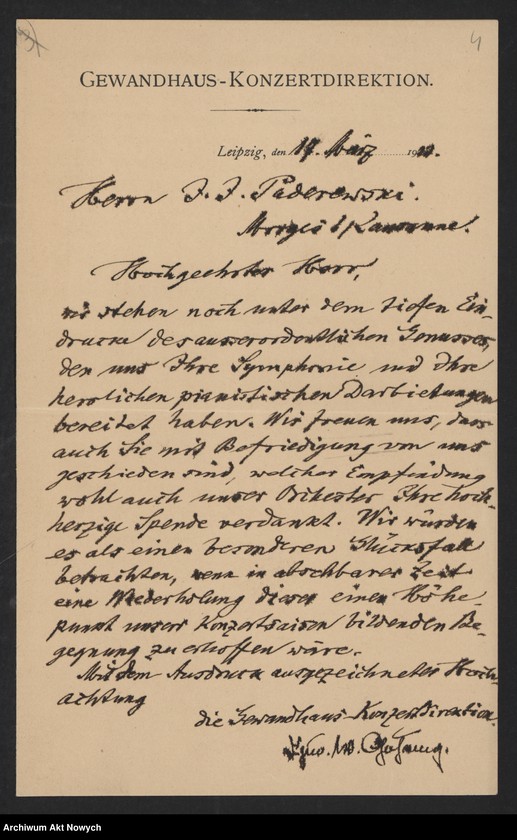 4
GEWANDHAUS-KONZERTDIREKTION.
Leipzig, den 17. März 19
Herrn I. I. Paderewski.
Morges b/Lausanne!
Hochgeehrter Herr,
wir stehen noch unter dem tiefen Ein-
drucke des ausserordentlichen Genusses,
den uns Ihre Symphonie und Ihre
herrlichen pianistischen Darbietungen
bereitet haben. Wir freuen uns, dass
auch Sie mit Befriedigung von uns
geschieden sind, welcher Empfindung
wohl auch unser Orchester Ihre hoch-
herzige Spende verdankt. Wir würden
es als einen besonderen Glücksfall
betrachten, wenn in absehbarer Zeit
eine Wiederholung dieser einen Höhe-
punkt unserer Konzertsaison bildenden Be-
gegnung zu erhoffen wäre.
Mit dem Ausdruck ausgezeichneter Hoch-
achtung
die Gewandhaus-Konzertdirektion.
Archiwum Akt Nowych